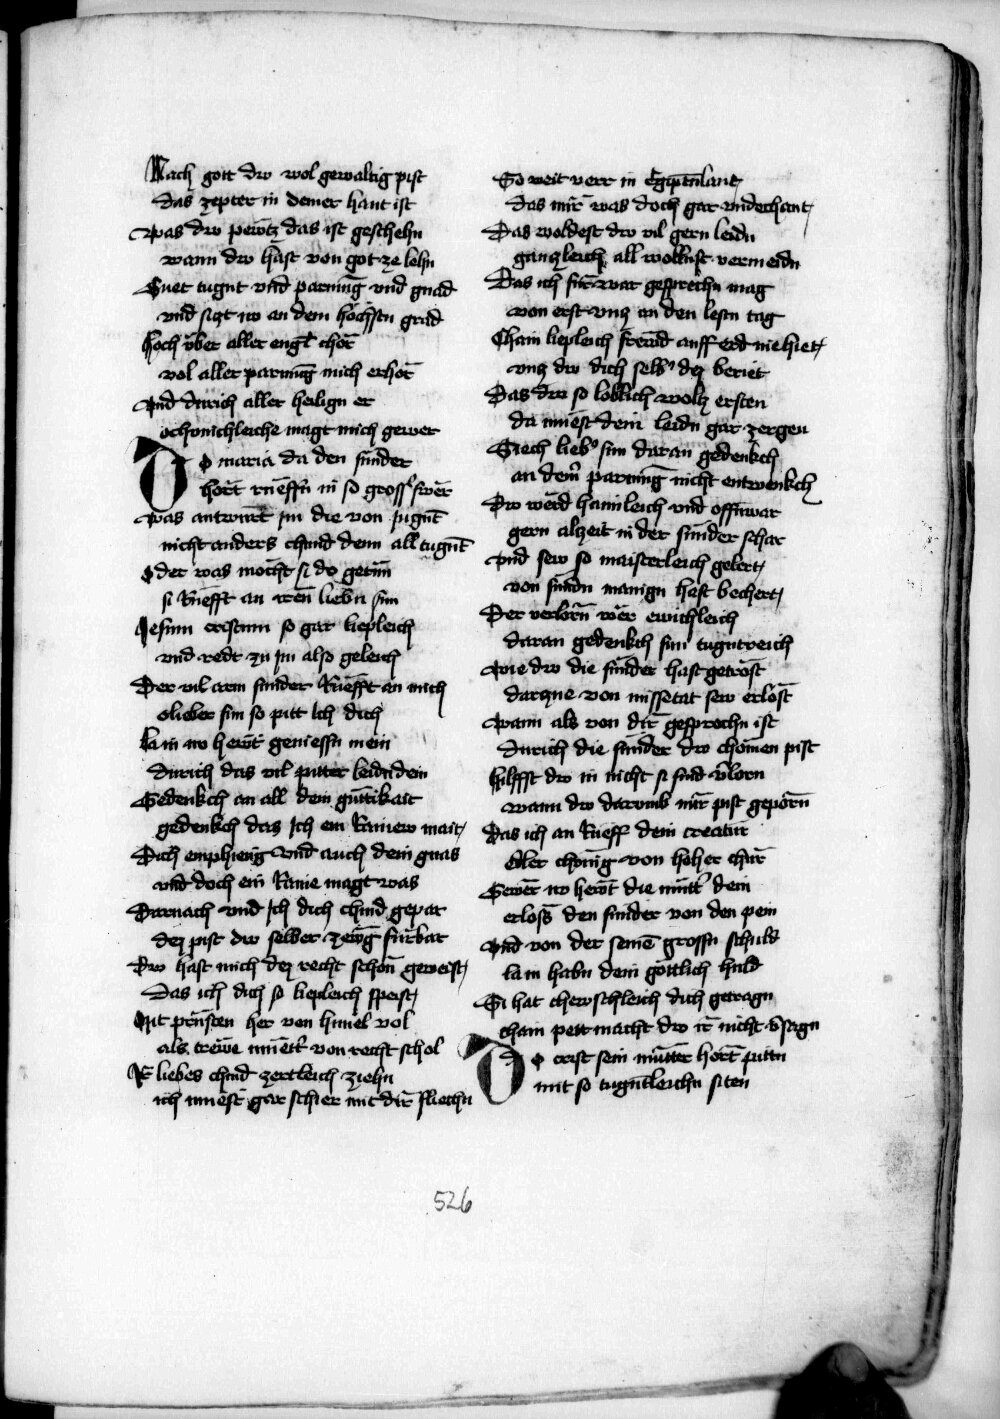 Nach gott dw wol gewaltig pist
das zepter in deiner hant ist
Was dw pewtz das ist geschehn
wann dw hast von got ze lehn
Guet tugnt vnd parmung vnd gnad
vnd sizt nv an dem höchstn grad
Hoch vber aller engl chör
vol aller parmung mich erhör
Vnd durich aller heilign er
ochvnichleiche magt mich gewer
Do maria da den sunder
hort rueffn in so grosser swer
Was antwurt im die von jugnt
nicht anders chund denn all tugnt
Oder was mocht si do getun
si Rüefft an iren liebn sun
Jesum cristum so gar liepleich
vnd redt zu im also geleich
Der vil arm sunder Rüefft an mich
o lieber sun so pitt ich dich
La in nv hewt geniessn mein
durich das vil pitter leidn dein
Gedenkch an all dein guttikait
gedenkch das ich ein Rainew mait
Dich emphieng vnd auch dein gnas
vnd doch ein Raine magt was
Darnach vnd ich dich chind gepar
dez pist dw selber zewg furbar
Dw hast mich dez recht schon geweist
Das ich dich so liepleich speist
Mit prusten her von himel vol
als trewe muetter von recht schol
Ir liebes chind zertleich ziehn
ich muest gar schier mit dir fliechn
So weit verr in Egiptnlant
das mir was doch gar vnderchant
Das woldest dw vil gern leidn
ganzleich all wollust vermeidn
Das ich fur war gesprechn mag
von erst vnz an den lestn tag
Chain liepleich frewd auff erd nie hiet
vnz dw dich selber dez beriet
Das dw so loblich wolz ersten
da muest dein leidn gar zergen
Siech lieber sun daran gedenkch
an deiner parmung nicht entwenkch
Dw werd haimleich vnd offnwar
gern alzeit in der sunder schar
Vnd sew so maisterleich gelert
von sundn manign hast bechert
Der verlorn wer ewichleich
daran gedenkch sun tugntreich
Wie dw die sunder hast getrost
darzue von missetat sew erlost
Wann als von dir gesprochn ist
durich die sunder dw chomen pist
Hilffst dw in nicht si sind verlorn
wann dw darumb mir pist geporn
Das ich an Rueff dein creatur
edler chonig von hoher chur
Gewer nv hewt die mutter dein
erloss den sunder von den pein
Vnd von der seinen grossn schuld
la in habn dein gottlich huld
Si hat chewschleich dich getragn
chain pett macht dw ir nicht versagn
Do crist sein mutter hort pittn
mit so tugntleichn siten
526